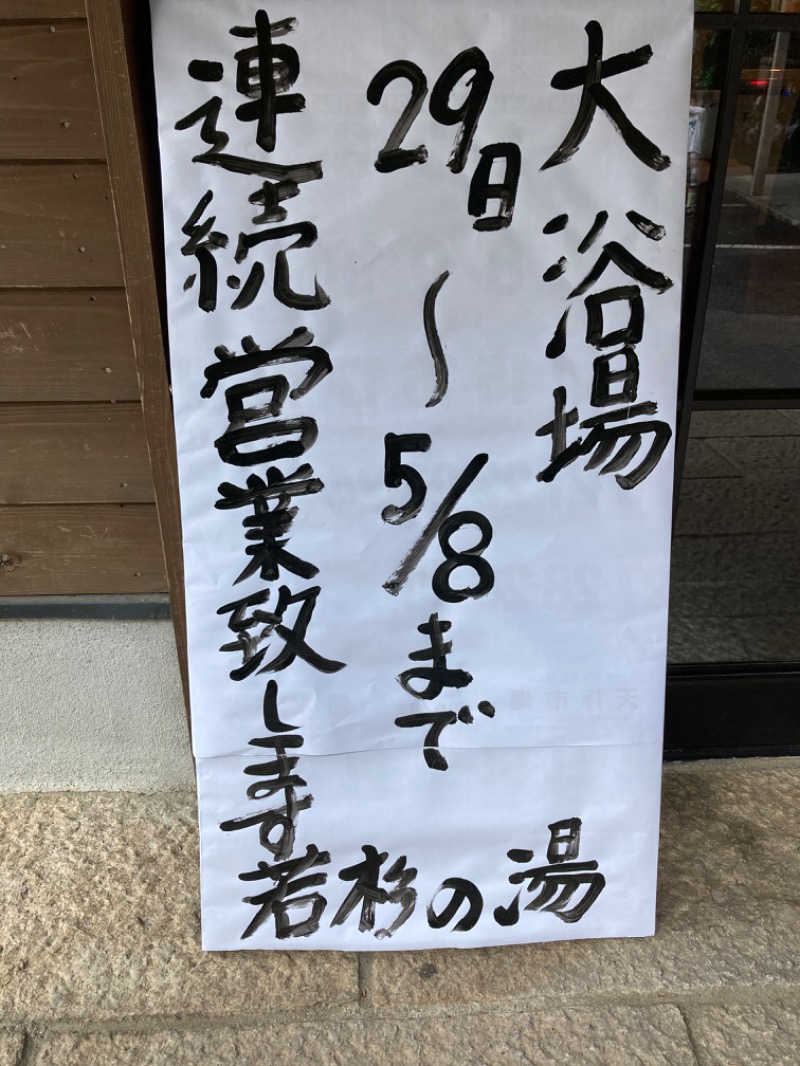 大浴場
29日〜5/8まで
連続営業致します
若杉の湯